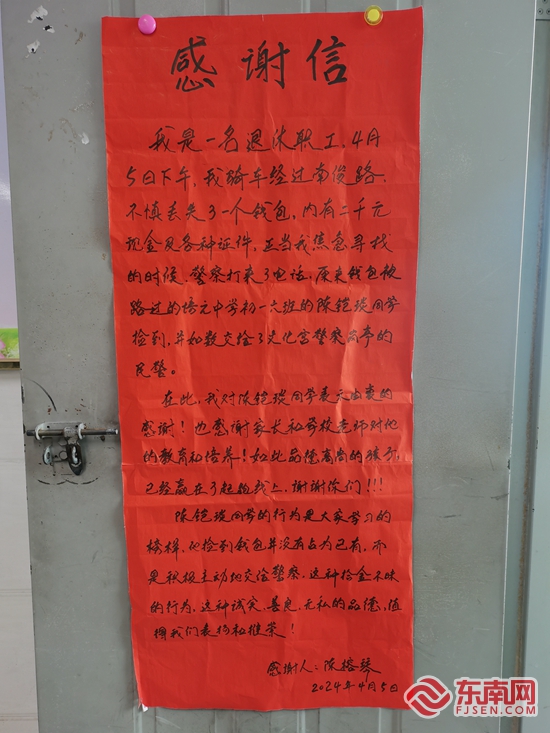 感谢信
我是一名退休职工，4月
5日下午，我骑车经过南俊路，
不慎丢失了一个钱包，内有二千元
现金及各种证件，正当我焦急寻找
的时候，警察打来了电话，原来钱包被
路过的培元中学初一六班的陈铠琰同学
捡到，并如数交给了文化宫警察岗亭的
民警。
在此，我对陈铠琰同学表示由衷的
感谢！也感谢家长和学校老师对他
的教育和培养！如此品德高尚的孩子，
已经赢在了起跑线上，谢谢你们！！！
陈铠琰同学的行为是大家学习的
榜样，他捡到钱包并没有占为己有，而
是积极主动地交给警察，这种拾金不昧
的行为，这种诚实、善良、无私的品德，值
得我们表扬和推崇！
感谢人：陈榕琴
2024年4月5日
东南网
FJSEN.COM